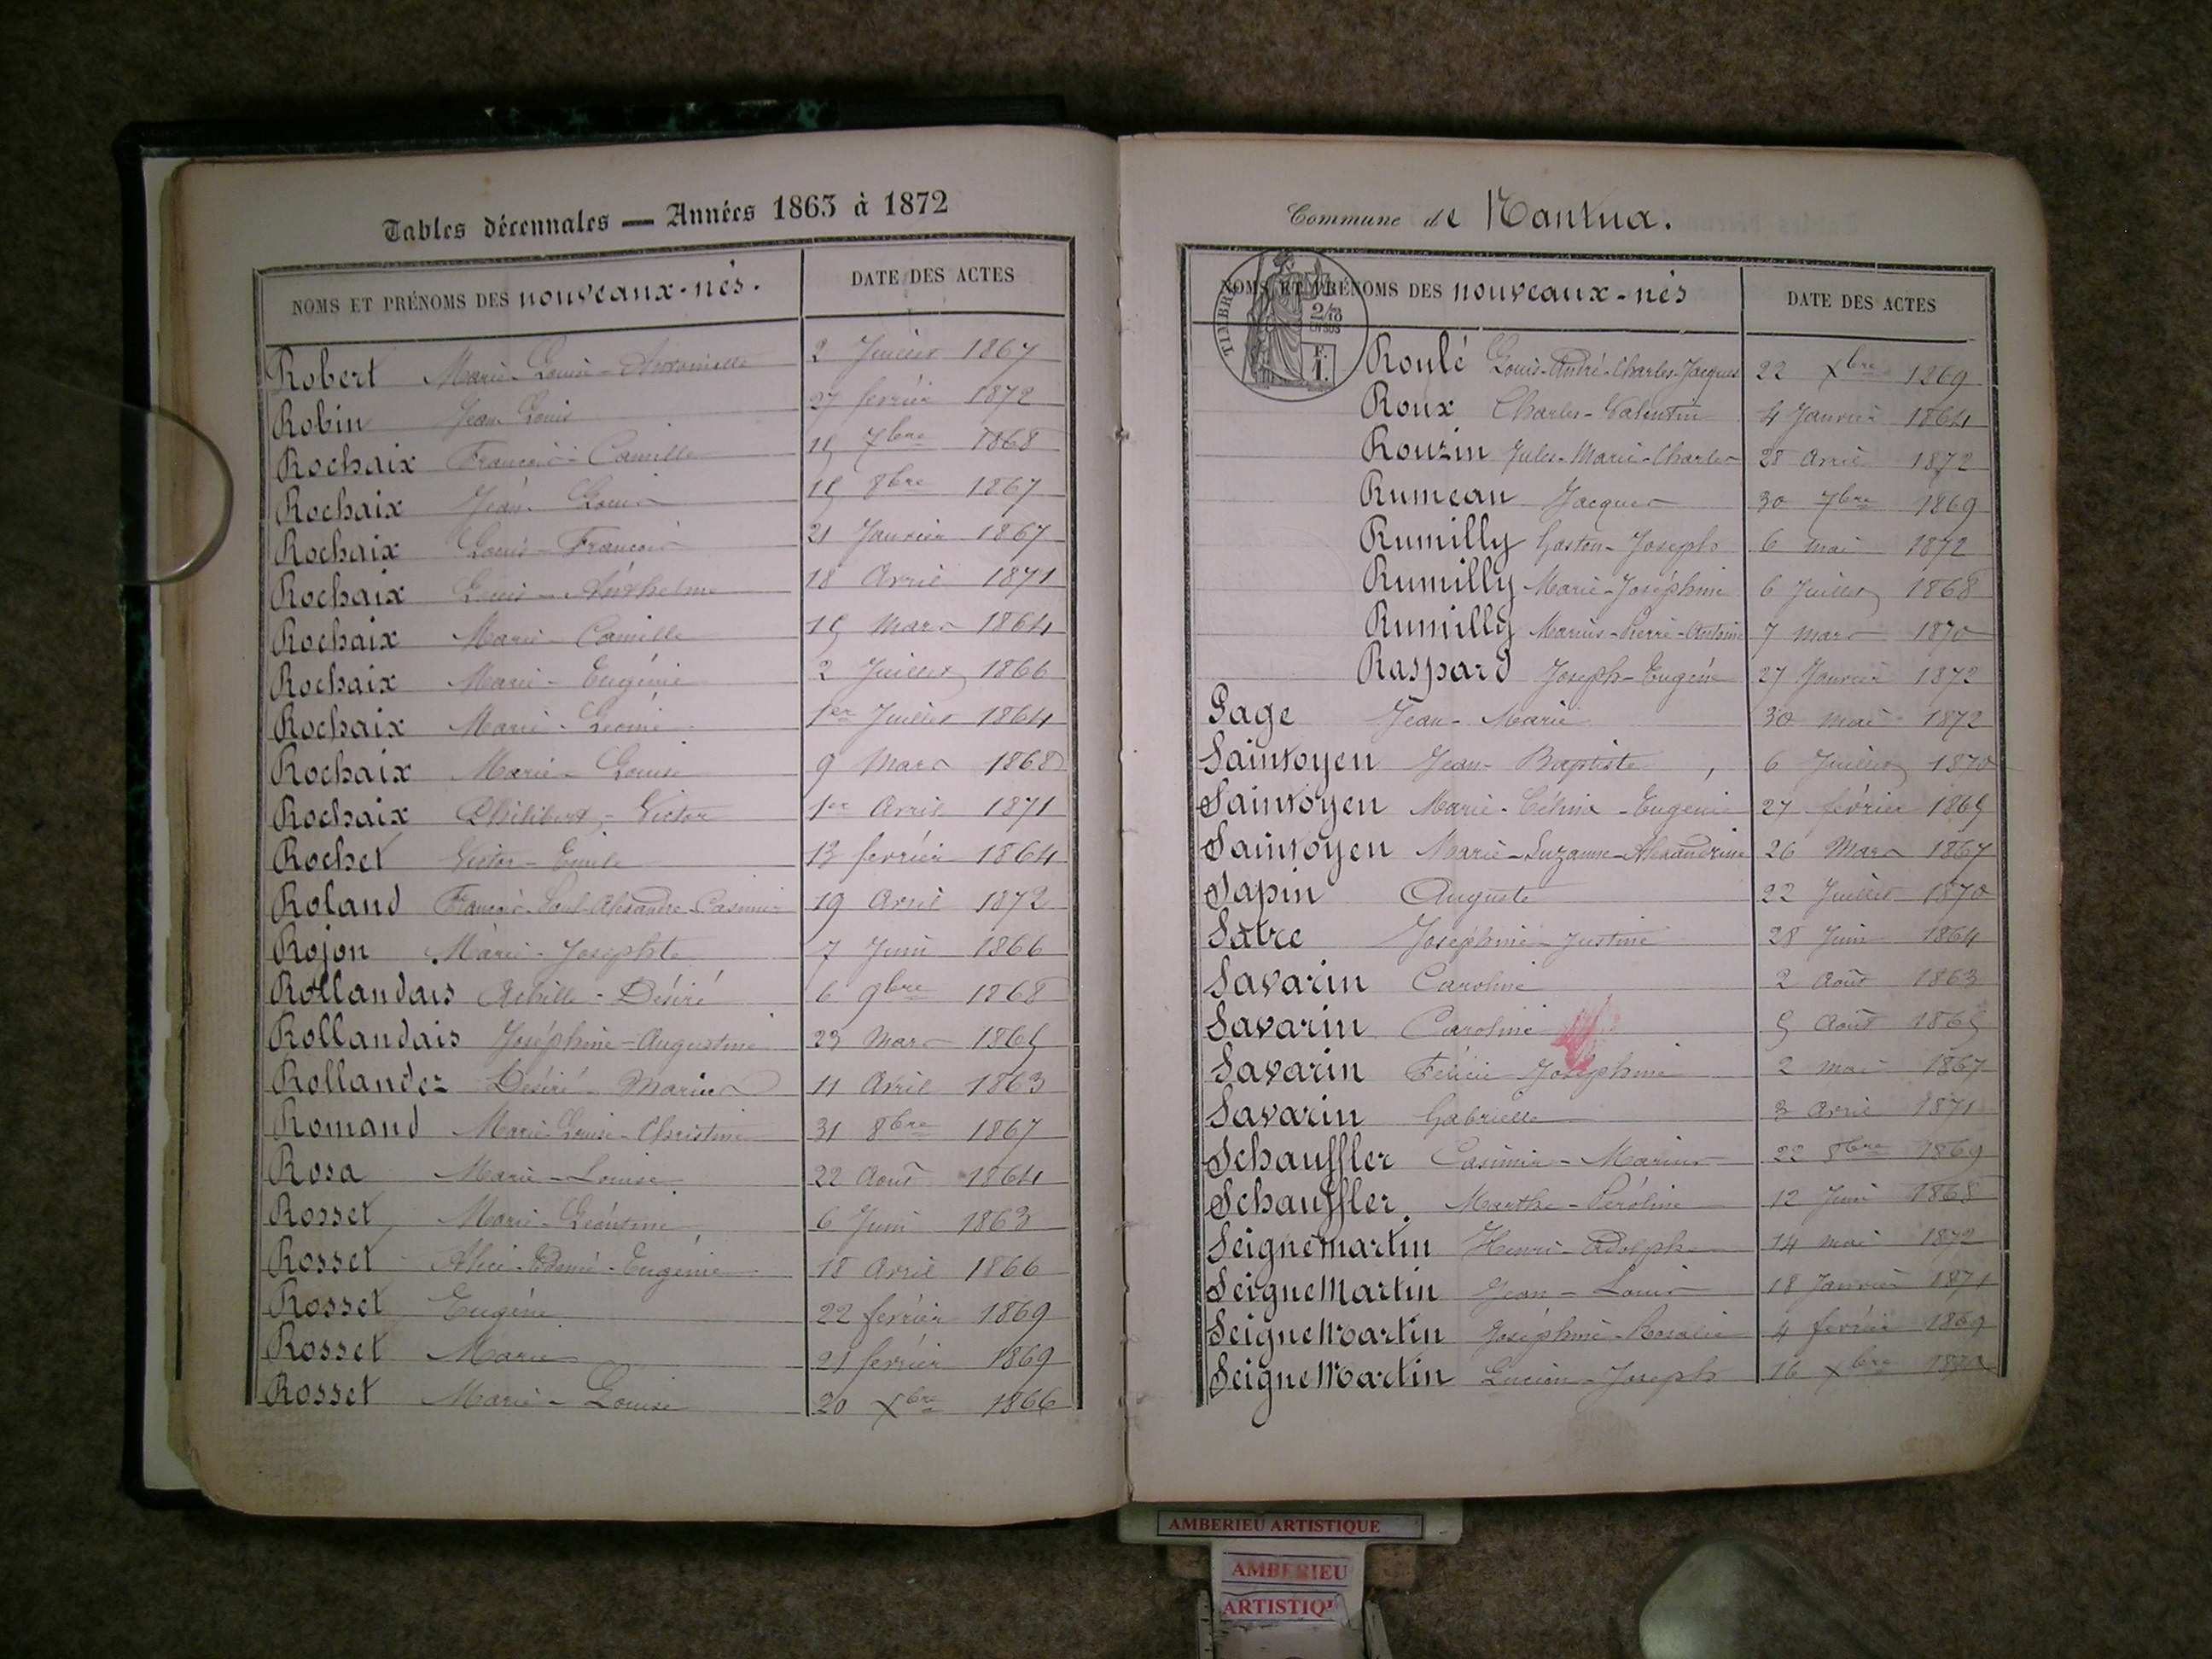 Tables décennales — Années 1863 à 1872
NOMS ET PRÉNOMS DES nouveaux-nés. DATE DES ACTES
Robert Marie-Louise-Antoinette 2 Juillet 1867
Robin Jean Louis 27 février 1872
Rochaix François-Camille 15 7bre 1868
Rochaix Jean Louis 15 8bre 1867
Rochaix Louis-François 21 Janvier 1867
Rochaix Louis-Anthelme 18 Avril 1871
Rochaix Marie-Camille 15 Mars 1864
Rochaix Marie-Eugénie 2 Juillet 1866
Rochaix Marie-Léonie 1er Juillet 1864
Rochaix Marie-Louise 9 Mars 1868
Rochaix Philibert-Victor 1er Avril 1871
Rochet Victor-Emile 13 février 1864
Roland François-Paul-Alexandre-Casimir 19 Avril 1872
Rojon Marie-Josephte 7 Juin 1866
Rollandais Achille-Désiré 6 9bre 1868
Rollandais Joséphine-Augustine 23 Mars 1865
Rollandez Désiré-Marius 11 Avril 1863
Romand Marie-Louise-Christine 31 8bre 1867
Rosa Marie-Louise 22 Août 1864
Rosset Marie-Léontine 6 Juin 1863
Rosset Alice-Edmé-Eugénie 18 Avril 1866
Rosset Eugène 22 février 1869
Rosset Marie 21 février 1869
Rosset Marie-Louise 20 Xbre 1866
Commune de Nantua.
NOMS ET PRÉNOMS DES nouveaux-nés DATE DES ACTES
TIMBRE
F. 1.
Roulé Louis-André-Charles-Jacques 22 Xbre 1869
Roux Charles-Valentin 4 Janvier 1864
Rouzin Jules-Marie-Charles 28 Avril 1872
Rumeau Jacques 30 7bre 1869
Rumilly Gaston-Joseph 6 mai 1872
Rumilly Marie-Joséphine 6 Juillet 1868
Rumilly Marius-Pierre-Antoine 7 mars 1870
Raspard Joseph-Eugène 27 Janvier 1872
Sage Jean-Marie 30 mai 1872
Saintoyen Jean-Baptiste 6 Juillet 1870
Saintoyen Marie-Célina-Eugénie 27 février 1865
Saintoyen Marie-Suzanne-Alexandrine 26 Mars 1867
Sapin Auguste 22 Juillet 1870
Satre Joséphine-Justine 28 Juin 1864
Savarin Caroline 2 Août 1863
Savarin Caroline 5 Août 1865
Savarin Félicie Joséphine 2 mai 1867
Savarin Gabrielle 3 Avril 1871
Schauffler Casimir-Marius 22 8bre 1869
Schauffler Marthe-Péroline 12 Juin 1868
Seignemartin Henri-Adolphe 14 mai 1872
SeigneMartin Jean-Louis 18 Janvier 1871
SeigneMartin Joséphine-Rosalie 4 février 1869
SeigneMartin Lucien-Joseph 16 Xbre
AMBERIEU ARTISTIQUE
AMBERIEU
ARTISTIQU